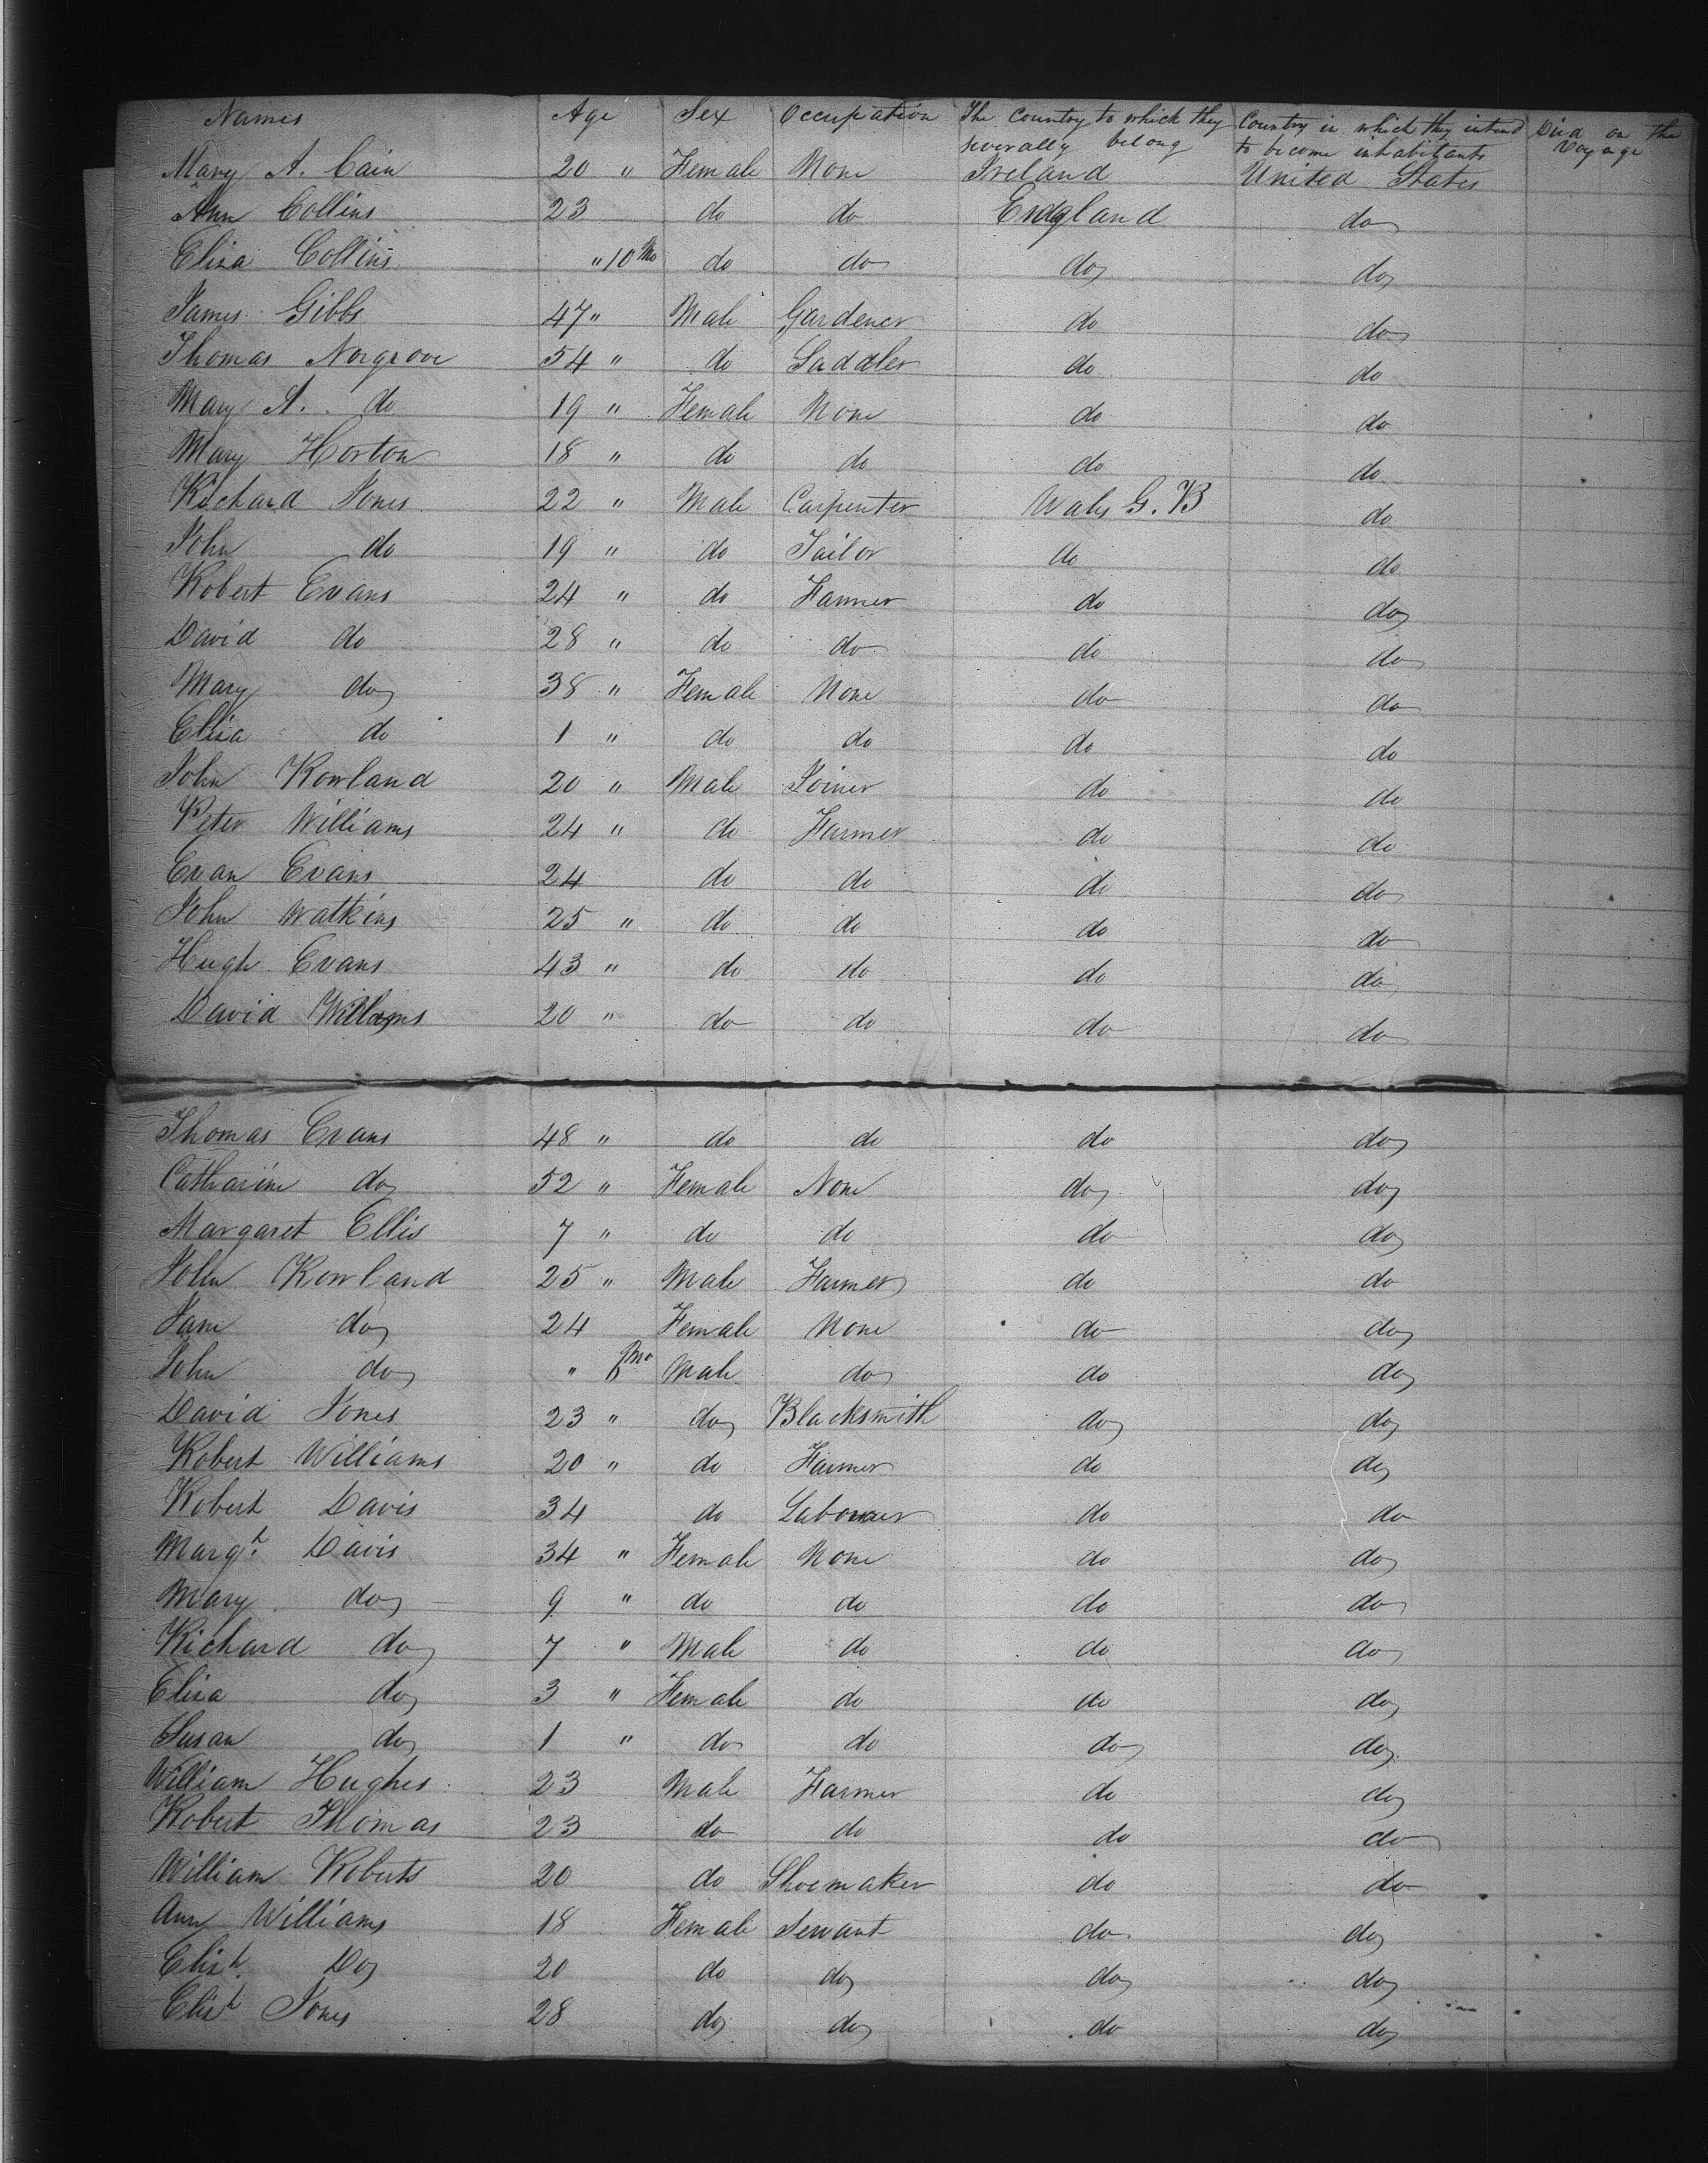 Names Age Sex Occupation The Country to which they severally belong Country in which they intend to become inhabitants Died on the Voyage
Mary A. Cain 20 " Female None Ireland United States
Ann Collins 23 do do England do
Eliza Collins " 10 Mo do do do do
James Gibbs 47 " Male Gardener do do
Thomas Norgrove 54 " do Saddler do do
Mary A. do 19 " Female None do do
Mary Horton 18 " do do do do
Richard Jones 22 " Male Carpenter Wales G. B do
John do 19 " do Tailor do do
Robert Evans 24 " do Farmer do do
David do 28 " do do do do
Mary do 38 " Female None do do
Eliza do 1 " do do do do
John Rowland 20 " Male Joiner do do
Peter Williams 24 " do Farmer do do
Evan Evans 24 do do do do
John Watkins 25 " do do do do
Hugh Evans 43 " do do do do
David Williams 20 " do do do do
Thomas Evans 48 " do do do do
Catharine do 52 " Female None do do
Margaret Ellis 7 " do do do do
John Rowland 25 " Male Farmer do do
Jane do 24 Female None do do
John do " Mo Male do do do
David Jones 23 " do Blacksmith do do
Robert Williams 20 " do Farmer do do
Robert Davis 34 do Labourer do do
Margt. Davis 34 " Female None do do
Mary do 9 " do do do do
Richard do 7 " Male do do do
Eliza do 3 " Female do do do
Susan do 1 " do do do do
William Hughes 23 Male Farmer do do
Robert Thomas 23 do do do do
William Roberts 20 do Shoemaker do do
Ann Williams 18 Female Servant do do
Elizh. Do 20 do do do do
Elizh Jones 28 do do do do